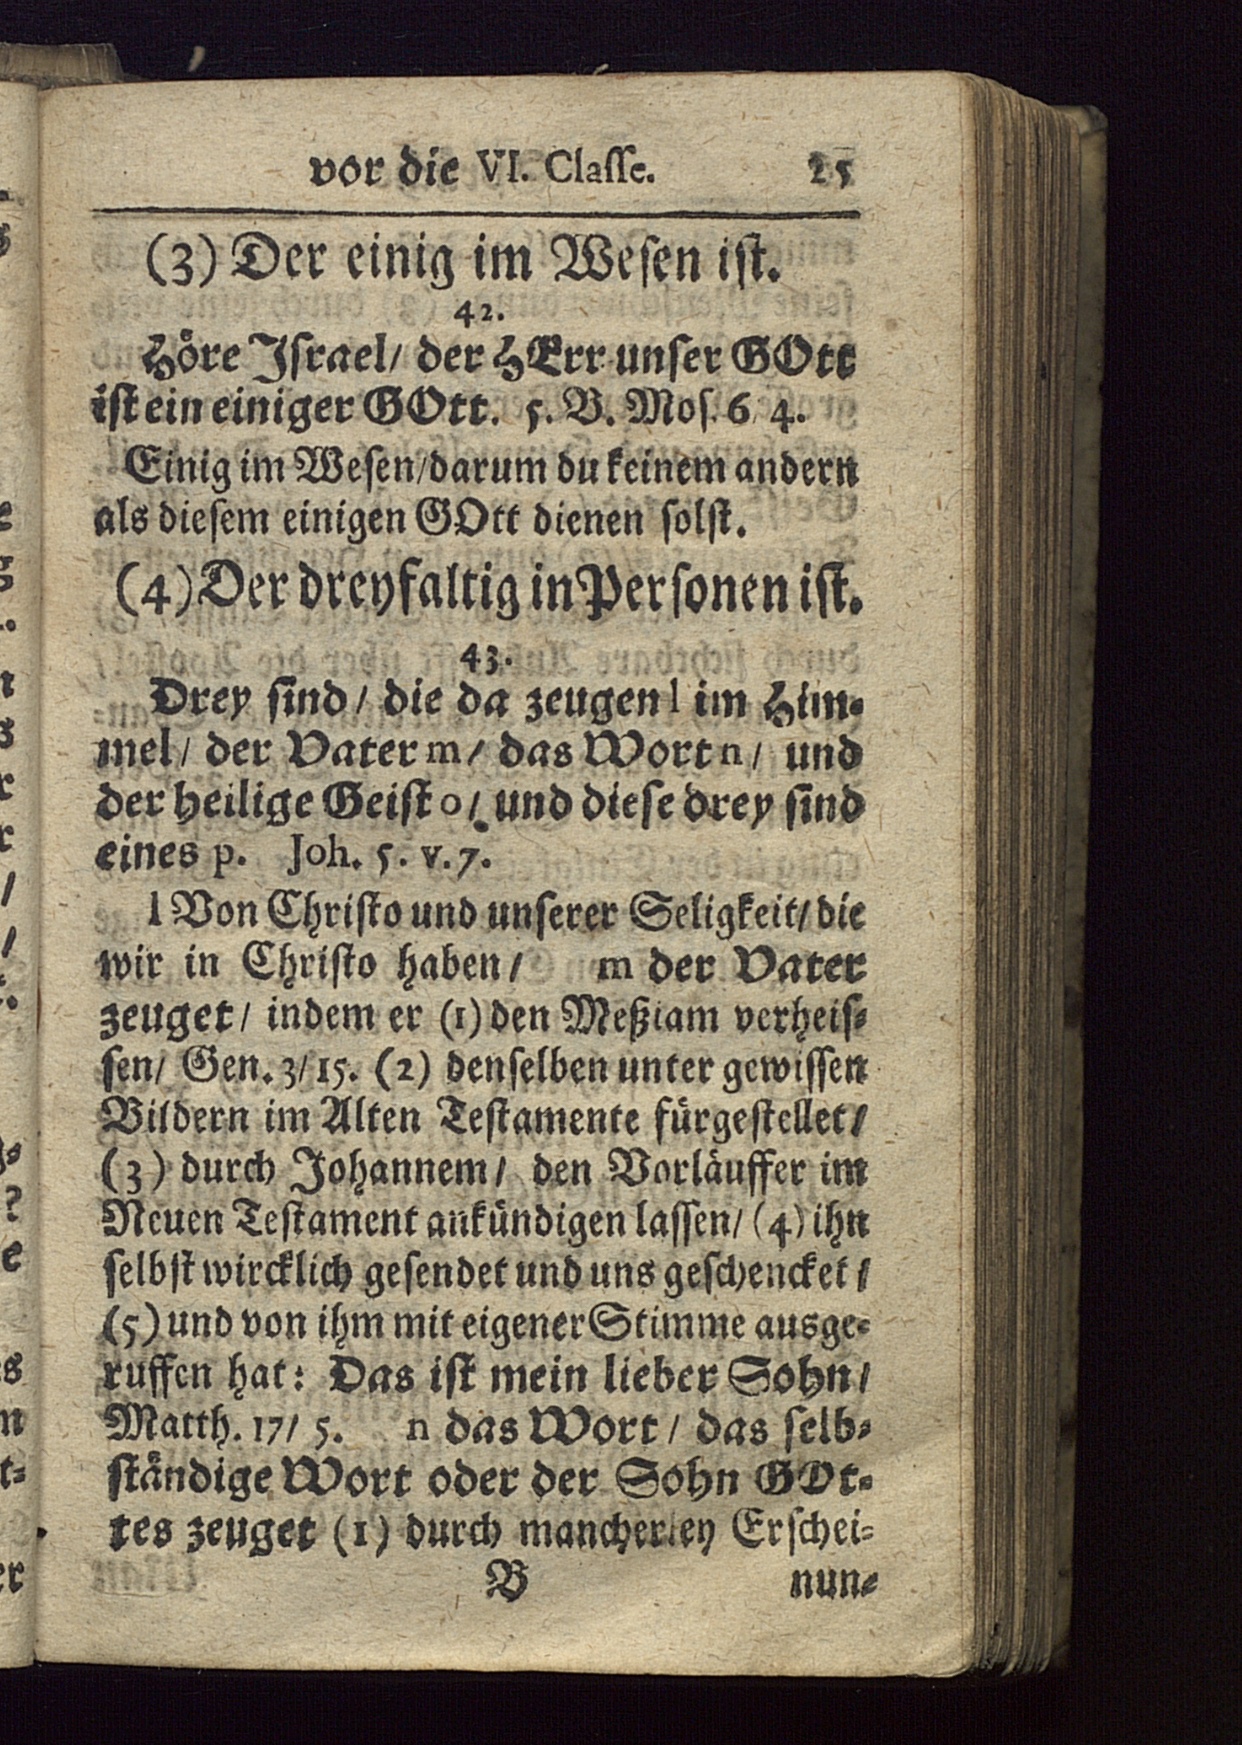 vor die VI. Classe. 25
(3) Der einig im Wesen ist.
42.
Höre Israel/ der HErr unser GOtt
ist ein einiger GOtt. 5. B. Mos. 6. 4.
Einig im Wesen/darum du keinem andern
als diesem einigen GOtt dienen solst.
(4) Der dreyfaltig in Personen ist.
43.
Drey sind/ die da zeugen l im Him-
mel/ der Vater m/ das Wort n/ und
der heilige Geist o/ und diese drey sind
eines p. Joh. 5. v. 7.
l Von Christo und unserer Seligkeit/ die
wir in Christo haben/ m der Vater
zeuget/ indem er (1) den Meßiam verheis-
sen/ Gen. 3/15. (2) denselben unter gewissen
Bildern im Alten Testamente fürgestellet/
(3) durch Johannem/ den Vorläuffer im
Neuen Testament ankündigen lassen/ (4) ihn
selbst wircklich gesendet und uns geschencket/
(5) und von ihm mit eigener Stimme ausge-
ruffen hat: Das ist mein lieber Sohn/
Matth. 17/ 5. n das Wort/ das selb-
ständige Wort oder der Sohn GOt-
tes zeuget (1) durch mancherley Erschei-
B nun-